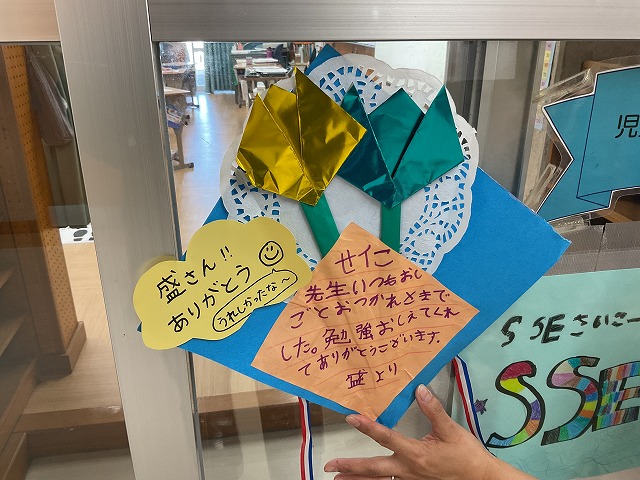 盛さん!!
ありがとう
うれしかったな〜
せイこ
先生いつもおし
ごとおつかれさまで
した。勉強おしえてくれ
てありがとうございます.
盛より
児
SSEさいこー
SSE